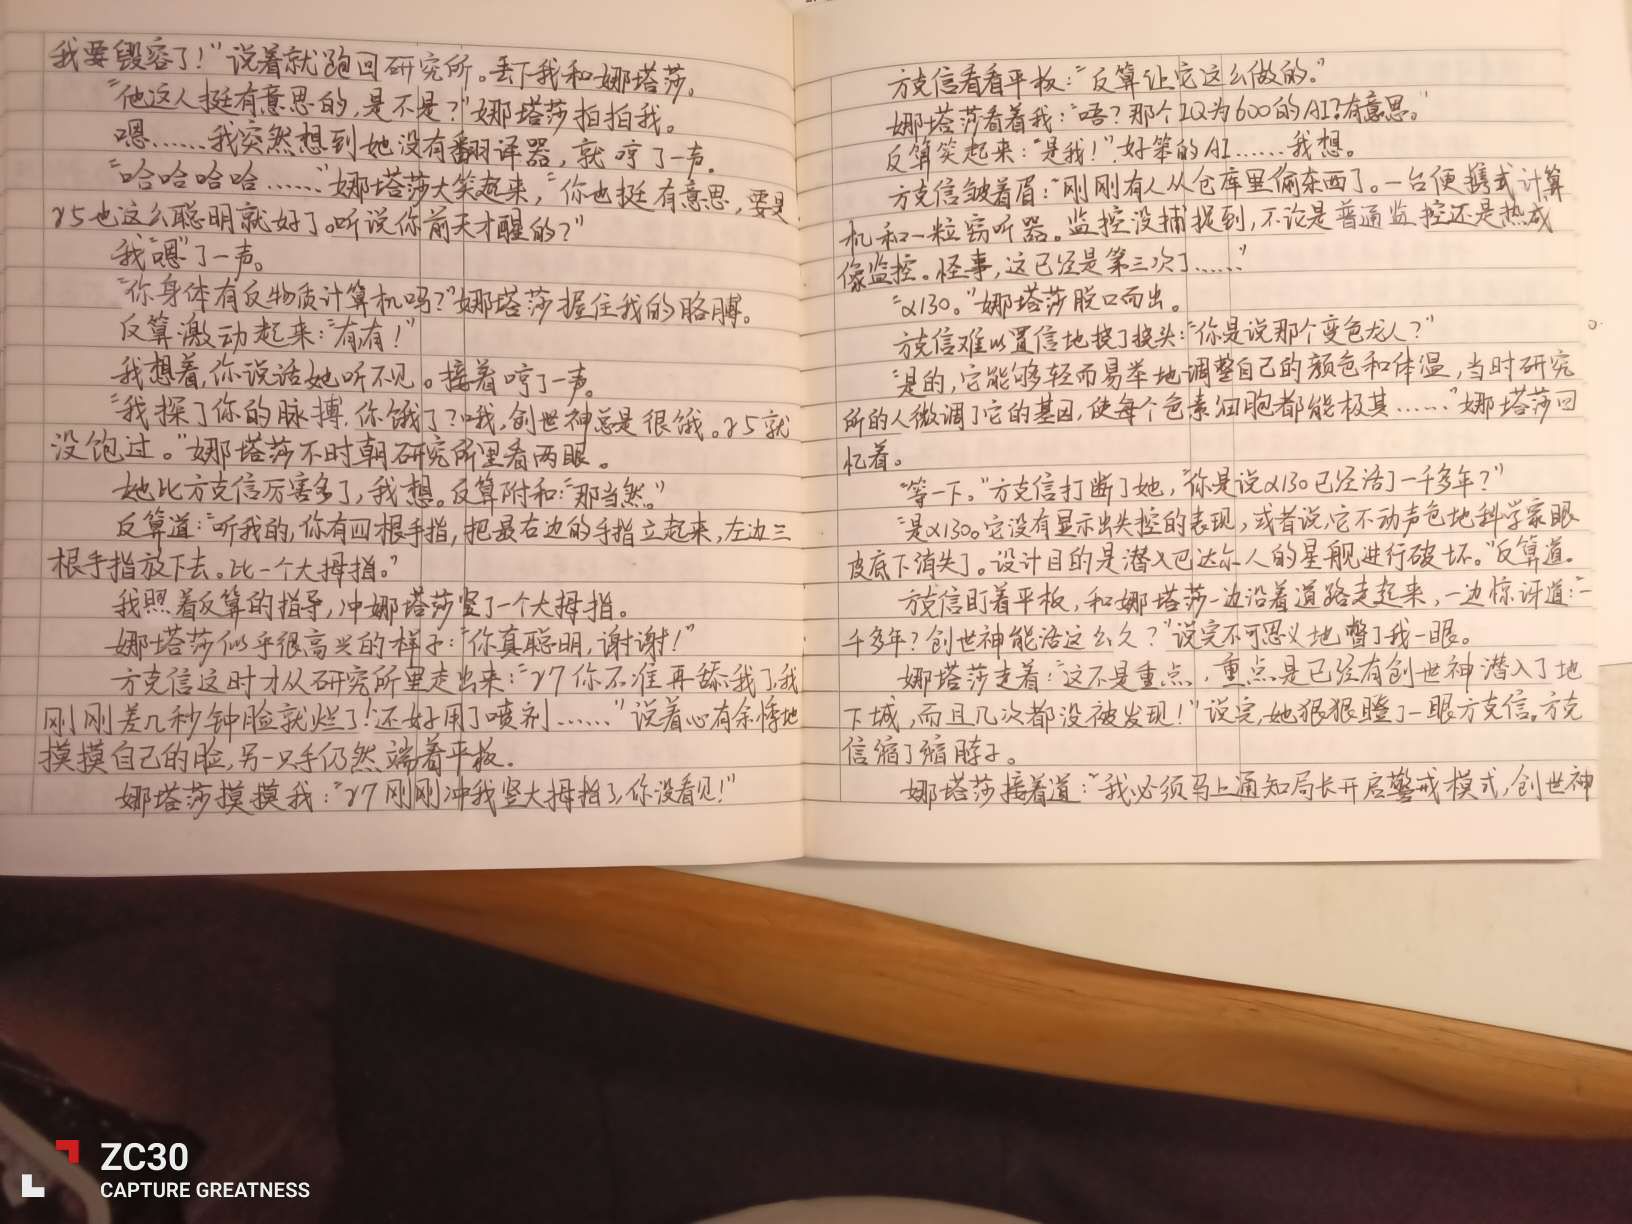 我要毁容了！”说着就跑回研究所。丢下我和娜塔莎。
“他这人挺有意思的，是不是？”娜塔莎拍拍我。
嗯……我突然想到她没有翻译器，就哼了一声。
“哈哈哈哈……”娜塔莎大笑起来，“你也挺有意思，要是
γ5也这么聪明就好了。听说你前天才醒的？”
我“嗯”了一声。
“你身体有反物质计算机吗？”娜塔莎握住我的胳膊。
反算激动起来：“有有！”
我想着，你说话她听不见。接着哼了一声。
“我探了你的脉搏，你饿了？哦，创世神总是很饿。γ5就
没饱过。”娜塔莎不时朝研究所里看两眼。
她比方克信厉害多了，我想。反算附和：“那当然。”
反算道：“听我的，你有四根手指，把最右边的手指立起来，左边三
根手指放下去。比一个大拇指。”
我照着反算的指导，冲娜塔莎竖了一个大拇指。
娜塔莎似乎很高兴的样子：“你真聪明，谢谢！”
方克信这时才从研究所里走出来：“γ7你不准再舔我了，我
刚刚差几秒钟脸就烂了！还好用了喷剂……”说着心有余悸地
摸摸自己的脸，另一只手仍然端着平板。
娜塔莎摸摸我：“γ7刚刚冲我竖大拇指了，你没看见！”
方克信看看平板：“反算让它这么做的。”
娜塔莎看着我：“唔？那个IQ为600的AI？有意思。”
反算笑起来：“是我！”好笨的AI……我想。
方克信皱着眉：“刚刚有人从仓库里偷东西了。一台便携式计算
机和一粒窃听器。监控没捕捉到，不论是普通监控还是热成
像监控。怪事，这已经是第三次了……”
“α130。”娜塔莎脱口而出。
方克信难以置信地挠了挠头：“你是说那个变色龙人？”
“是的，它能够轻而易举地调整自己的颜色和体温，当时研究
所的人微调了它的基因，使每个色素细胞都能极其……”娜塔莎回
忆着。
“等一下。”方克信打断了她，“你是说α130已经活了一千多年？”
“是α130。它没有显示出失控的表现，或者说，它不动声色地科学家眼
皮底下消失了。设计目的是潜入巴达尔人的星舰进行破坏。”反算道。
方克信盯着平板，和娜塔莎一边沿着道路走起来，一边惊讶道：“一
千多年？创世神能活这么久？”说完不可思义地瞥了我一眼。
娜塔莎走着：“这不是重点，重点是已经有创世神潜入了地
下城，而且几次都没被发现！”说完，她狠狠瞪了一眼方克信。方克
信缩了缩脖子。
娜塔莎接着道：“我必须马上通知局长开启警戒模式，创世神
ZC30
CAPTURE GREATNESS